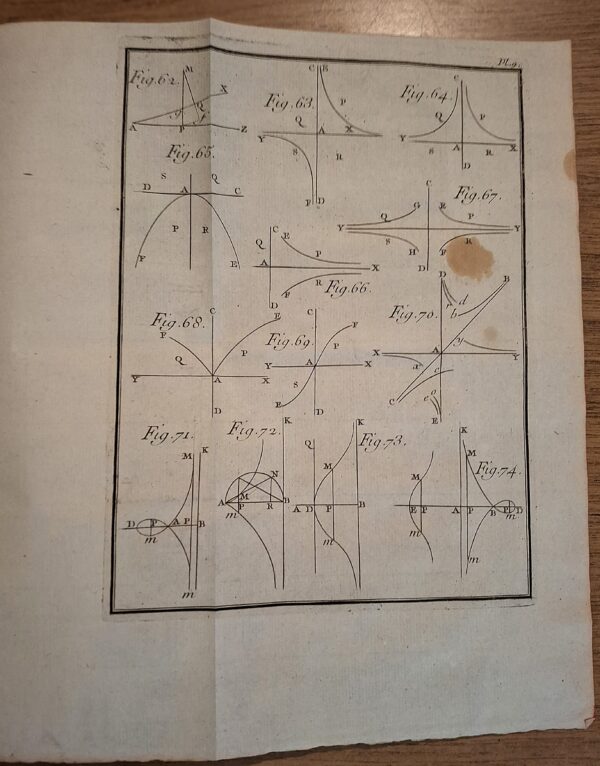 Pl. 9.
Fig. 62.
M
X
Q
A
P
f
Z
Fig. 63.
C E
P
Q
Y
A
X
S
R
F D
Fig. 64.
C
Q
P
Y
A
X
S
R
D
Fig. 65.
S
Q
D
A
C
P
R
F
E
Fig. 66.
C
E
Q
P
A
X
R
F
D
Fig. 67.
C
G
E
Q
P
Y
Y
S
R
H
F
D
Fig. 68.
C
E
F
P
Q
Y
A
X
D
Fig. 69.
C
F
P
Y
A
X
S
E
D
Fig. 70.
D
B
r
d
b
A
y
X
Y
x
c
C
e
o
E
Fig. 71.
K
M
D
P
A
P
B
m
m
Fig. 72.
K
N
M
A
P
R
B
m
Fig. 73.
K
Q
M
A
D
P
B
m
Fig. 74.
K
M
E
P
A
P
B
P
D
m
m